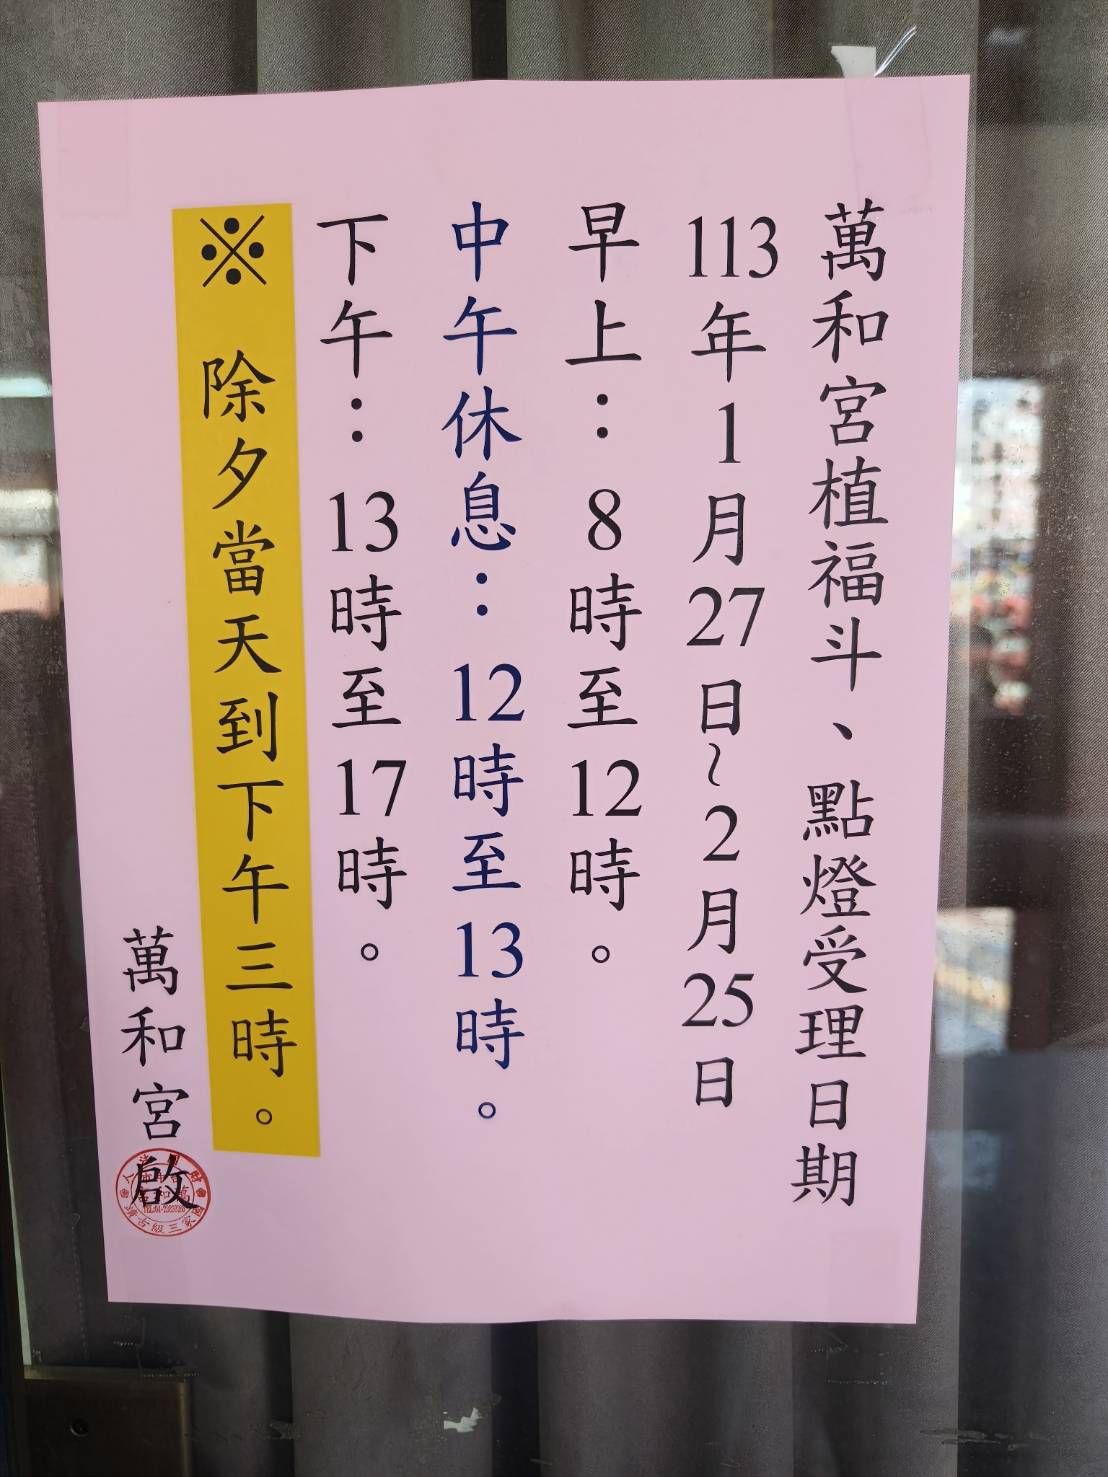 萬和宮植福斗、點燈受理日期
113年1月27日~2月25日
早上：8時至12時。
中午休息：12時至13時。
下午：13時至17時。
※ 除夕當天到下午三時。
萬和宮啟